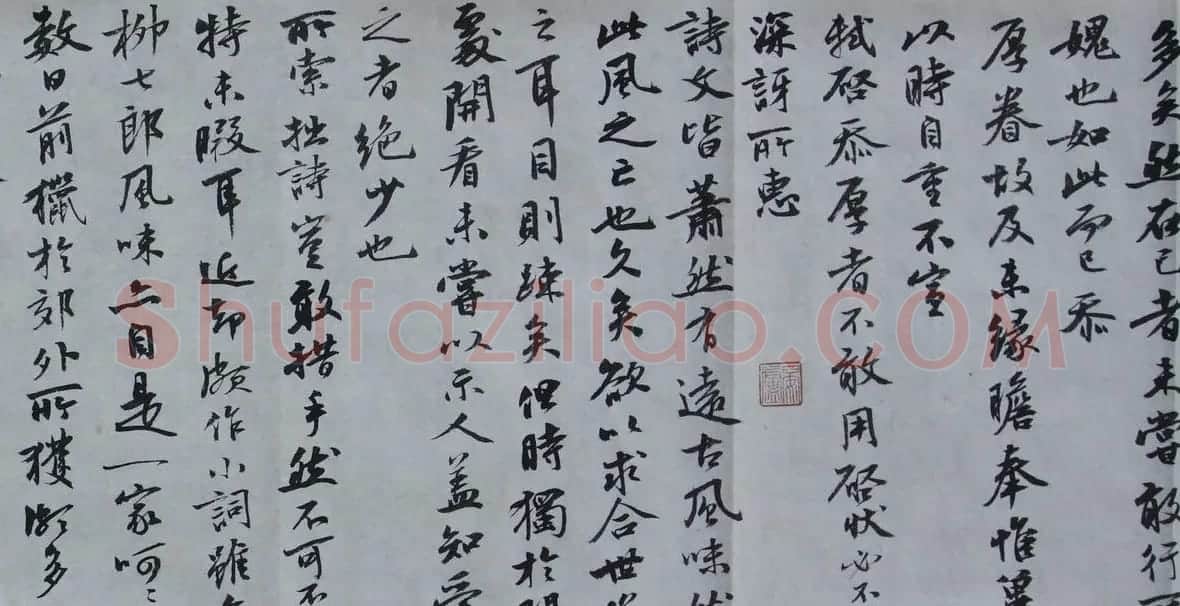 多矣然在己者未嘗敢行
媿也如此而已忝
厚眷故及未緣瞻奉惟冀
以時自重不宣
軾啓忝厚者不敢用啓狀必不
深訝所惠
詩文皆蕭然有遠古風味然
此風之亡也久矣欲以求合世
之耳目則疎矣但時獨於閒
處開看未嘗以示人蓋知愛
之者絶少也
所索拙詩豈敢措手然不可不
特未暇耳近却頗作小詞雖
柳七郎風味亦自是一家呵〻
數日前獵於郊外所獲頗多
Shufaziliao.COM